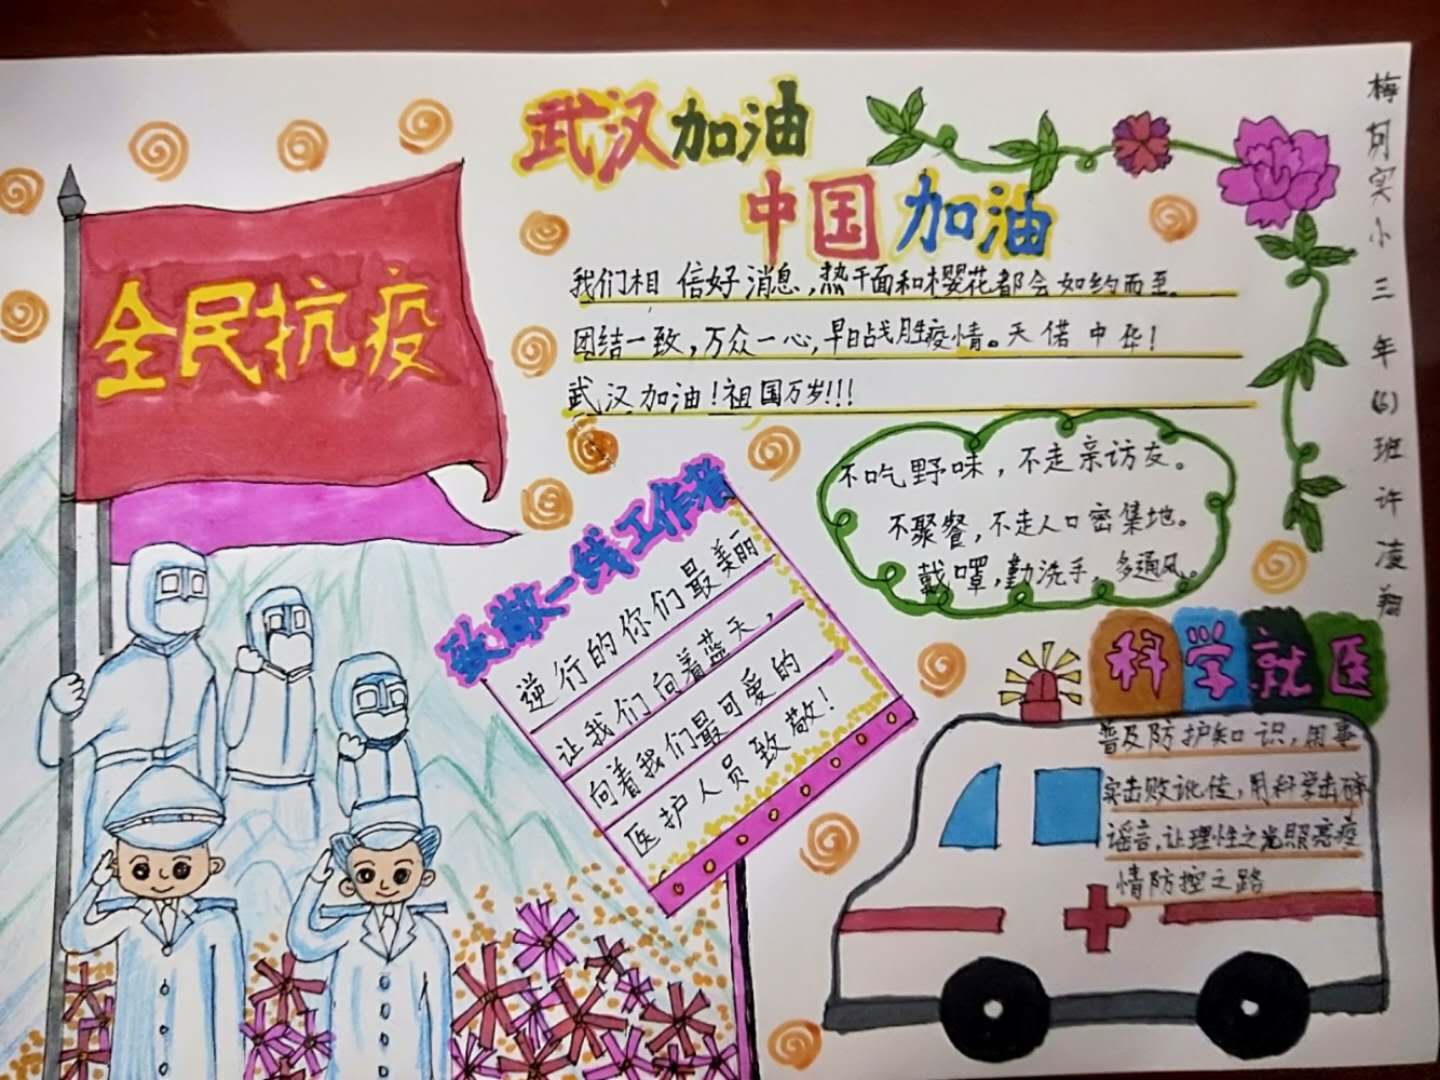 武汉加油
中国加油
我们相信好消息,热干面和樱花都会如约而至。
团结一致,万众一心,早日战胜疫情。天偌中华!
武汉加油!祖国万岁!!!
全民抗疫
不吃野味,不走亲访友。
不聚餐,不走人口密集地。
戴罩,勤洗手,多通风。
致敬一线工作者
逆行的你们最美丽
让我们向着蓝天,
向着我们最可爱的
医护人员致敬!
科学就医
普及防护知识,用事
实击败讹传,用科学击碎
谣言,让理性之光照亮疫
情防控之路
梅 实小三年(6)班许凌翔